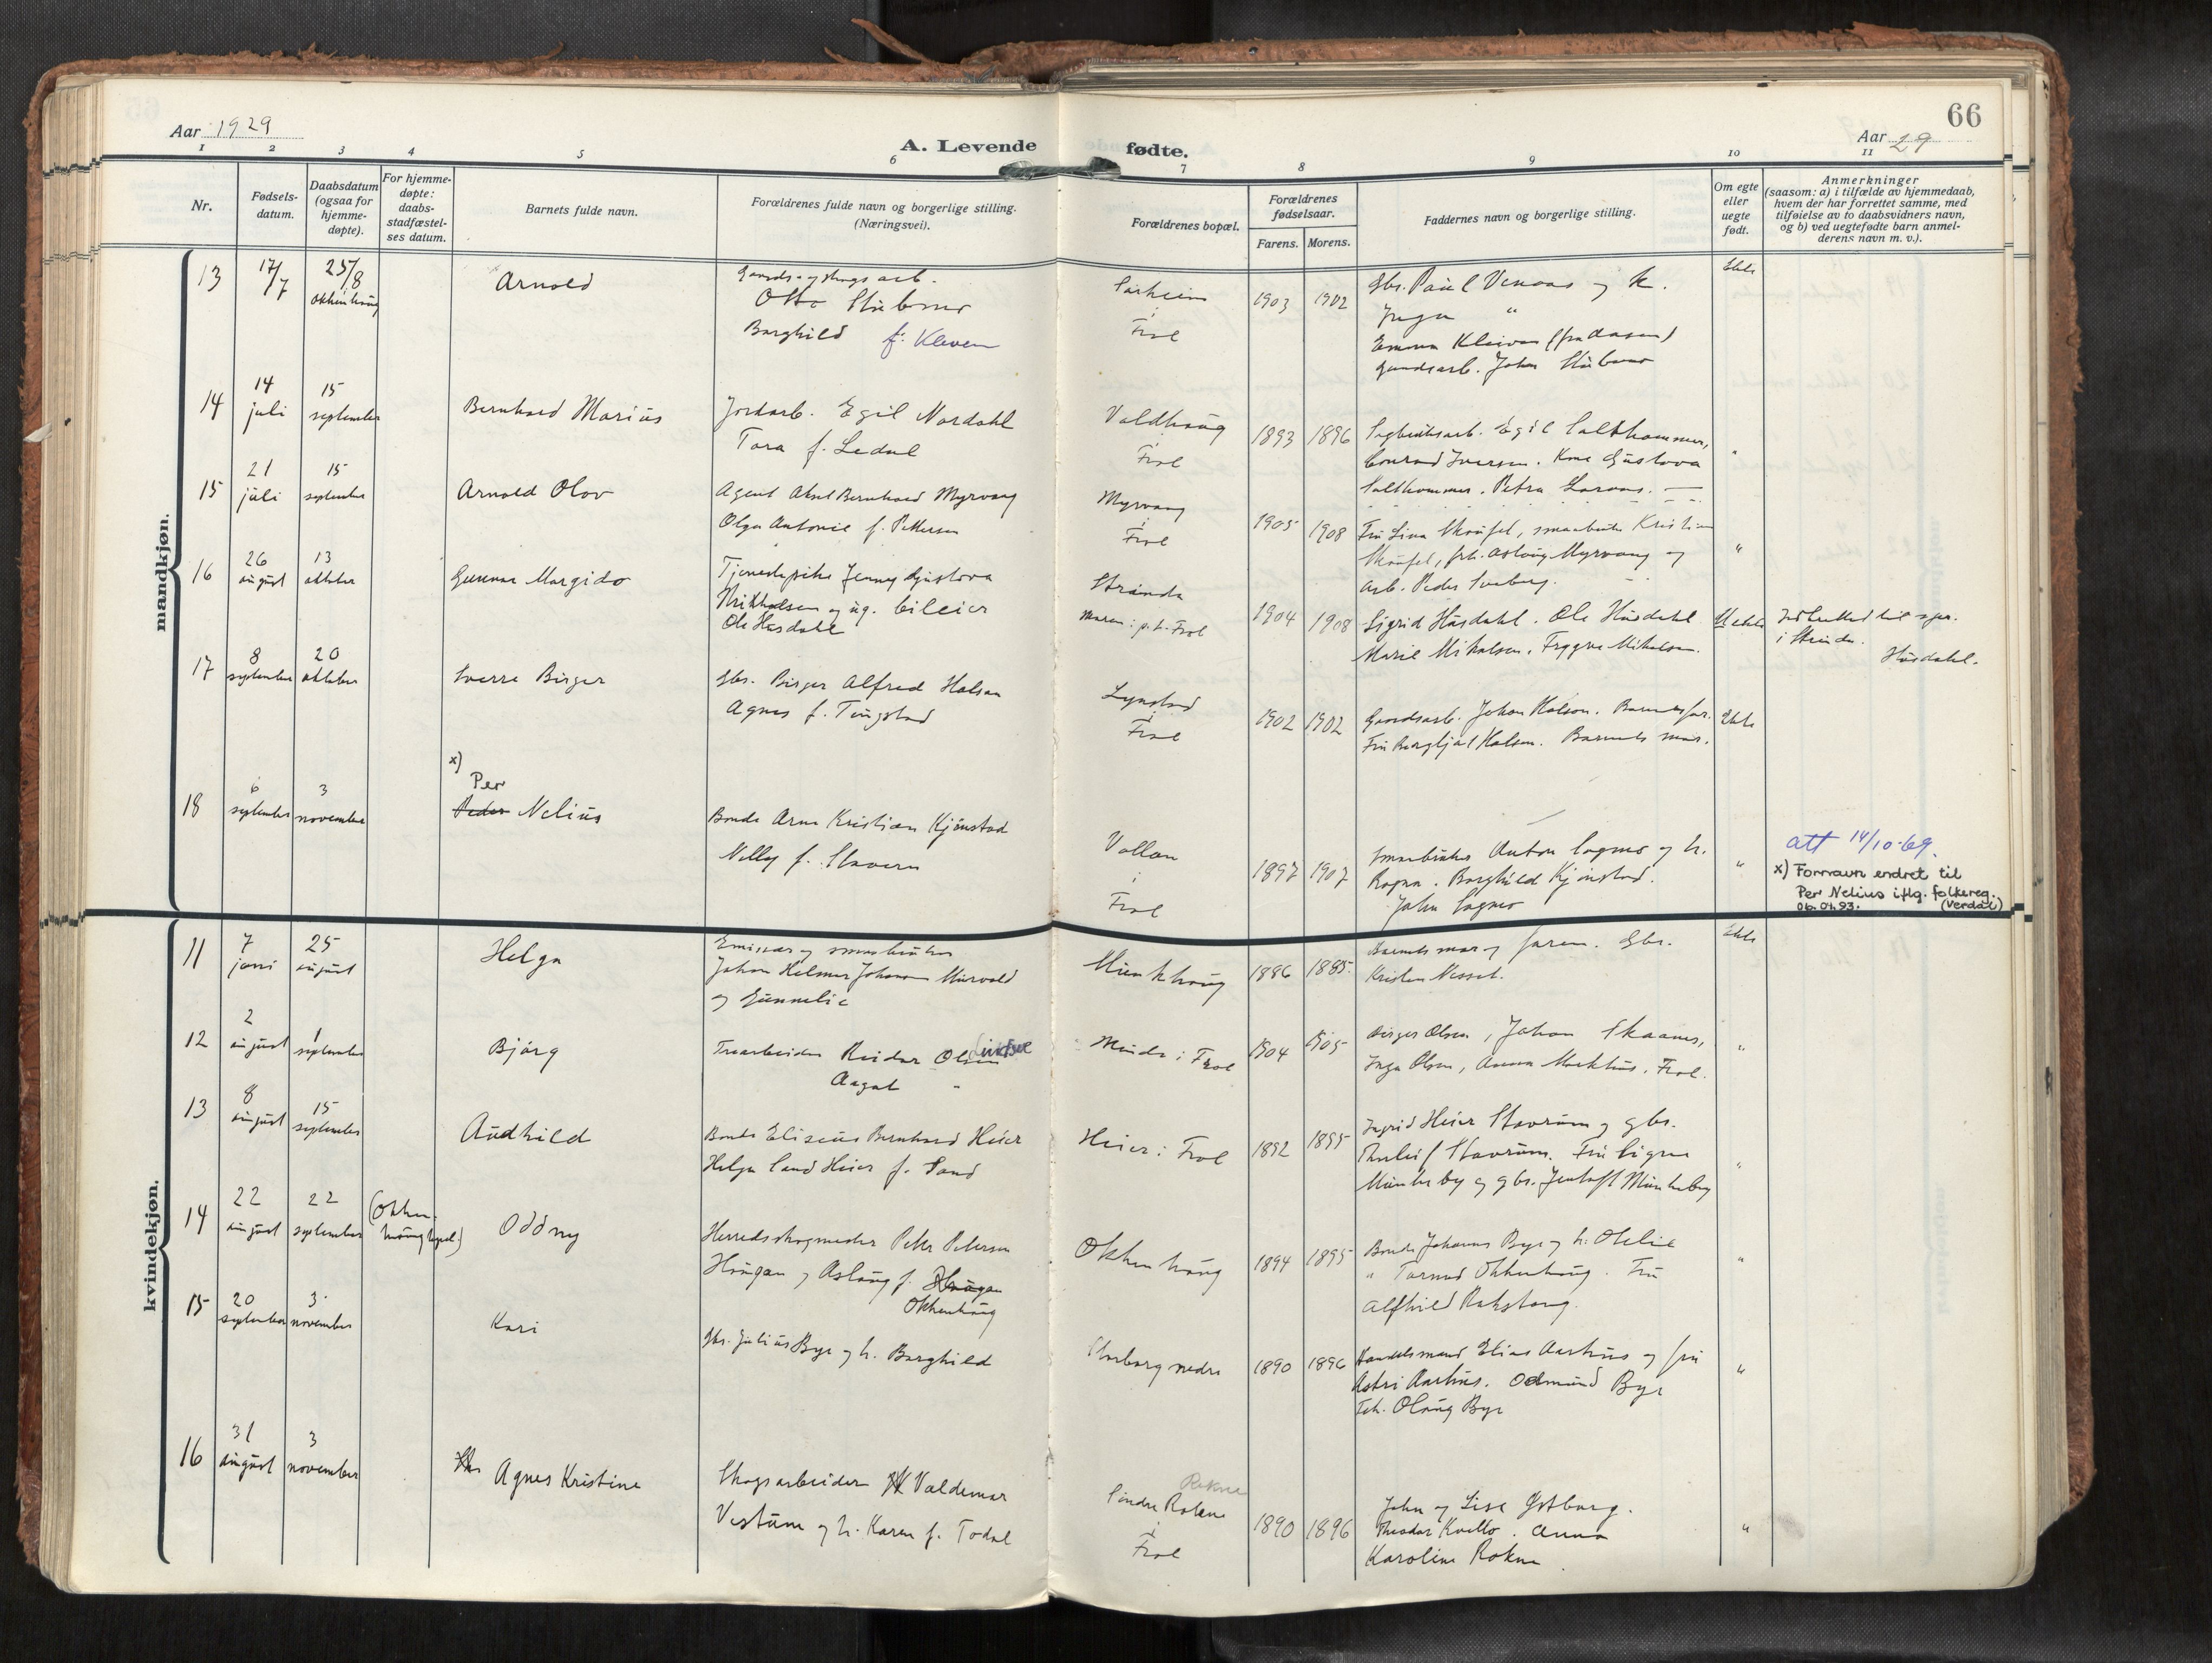 66
Aar 1929
A. Levende fødte.
Aar 29
1 2 3 4 5 6 7 8 9 10 11
Nr.
Fødsels-
datum.
Daabsdatum
(ogsaa for
hjemme-
døpte).
For hjemme-
døpte:
daabs-
stadfæstel-
ses datum.
Barnets fulde navn.
Forældrenes fulde navn og borgerlige stilling.
(Næringsvei).
Forældrenes bopæl.
Forældrenes
fødselsaar.
Farens. Morens.
Faddernes navn og borgerlige stilling.
Om egte
eller
uegte
født.
Anmerkninger
(saasom: a) i tilfælde av hjemmedaab,
hvem der har forrettet samme, med
tilføielse av to daabsvidners navn,
og b) ved uegtefødte barn anmel-
derens navn m. v.).
mandkjøn.
13
17/7
25/8
Okkenhaug
Arnold
Otto
Borghild f. Kleven
i
Frol
1903 1902
Gbr. Paul Venaas og k.
Inga "
Gaardsarb. Johan
Ekte
14
14
juli
15
september
Bernhard Marius
Jordarb. Egil Nordahl
Tora f. Ledal
Voldhaug
i
Frol
1893 1896
Sagbruksarb. Egil Salthammer,
Conrad Iversen. Kone Gustava
Salthammer. Petra
"
15
21
juli
15
september
Arnold Olav
Agent Aksel Bernhard Myrvang
Olga Antonie f. Pettersen
Myrvang
i
Frol
1905 1908
Fru Lina Skånfel, smaabruker Kristian
Skånfel, frk. Aslaug Myrvang og
arb. Peder Sveberg.
"
16
26
august
13
oktober
Gunnar Margido
Tjenestepike Jenny Gustava
og ug.
Ole Husdahl
Strinda
Moren: p.t. Frol
1904 1908
Sigrid Husdahl. Ole Husdahl
Marie Mikalsen. Trygve Mikalsen.
Uekte
i Strinda.
Husdahl.
17
8
september
20
oktober
Sverre Birger
Gbr. Birger Alfred Halsan
Agnes f. Tingstad
Lynstad
i
Frol
1902 1902
Gaardsarb. Johan Halsan. Barnets far.
Fru Bergljot Halsan. Barnets mor.
Ekte
18
6
september
3
november
x)
Per
Peder Nelius
Bonde Arne Kristian Kjønstad
Nelly f. Stavern
Vollan
i
Frol
1897 1907
Smaabruker Anton Sagmo og h.
Ragna. Borghild Kjønstad.
John Sagmo
"
att 14/10-69.
x) Fornavn endret til
Per Nelius iflg. folkereg.
06.04.93. (Verdal)
kvindekjøn.
11
7
juni
25
august
Helga
Emissær og smaabruker
Johan Helmer Johansen Murvold
og Gunnelie
Munkhaug
1886 1885.
Barnets mor og faren. Gbr.
Kristen Nesset.
Ekte
12
2
august
1
september
Bjørg
Træarbeider Reidar Olsen
Aagot "
Minde i Frol
1904 1905
Birger Olsen, Johan Skaanes,
Inga Olsen, Anna Markhus. Frol.
"
13
8
august
15
september
Audhild
Bonde Eliseus Bernhard Heier
Helga Sand Heier f. Sand
Heier i Frol
1892 1895
Ingrid Heier Stavrum og gbr.
Stavrum. Fru Signe
Munkeby og gbr. Jentoft Munkeby
"
14
22
august
22
september
(Okken-
haug kapel.)
Oddny
Herredsskogmester Peter Petersen
Haugan og Aslaug f. Haugan
Okkenhaug
Okkenhaug
1894 1895
Bonde Johannes Bye og h. Otelie
" Tormod Okkenhaug. Fru
Alfhild Rokstang.
"
15
20
september
3
november
Kari
Gbr. Julius Bye og h. Borghild
Storborg nedre
1890 1896
Handelsmand Elias Aarhus og fru
Astri Aarhus. Odmund Bye
Frk. Olaug Bye
"
16
31
august
3
november
Agnes Kristine
Skogsarbeider Valdemar
Vestum og h. Karen f. Todal
Rokne
Søndre Rokne
i
Frol
1890 1896
John og Lise Østborg.
Teodor Kvello. Anna
Karoline Rokne
"